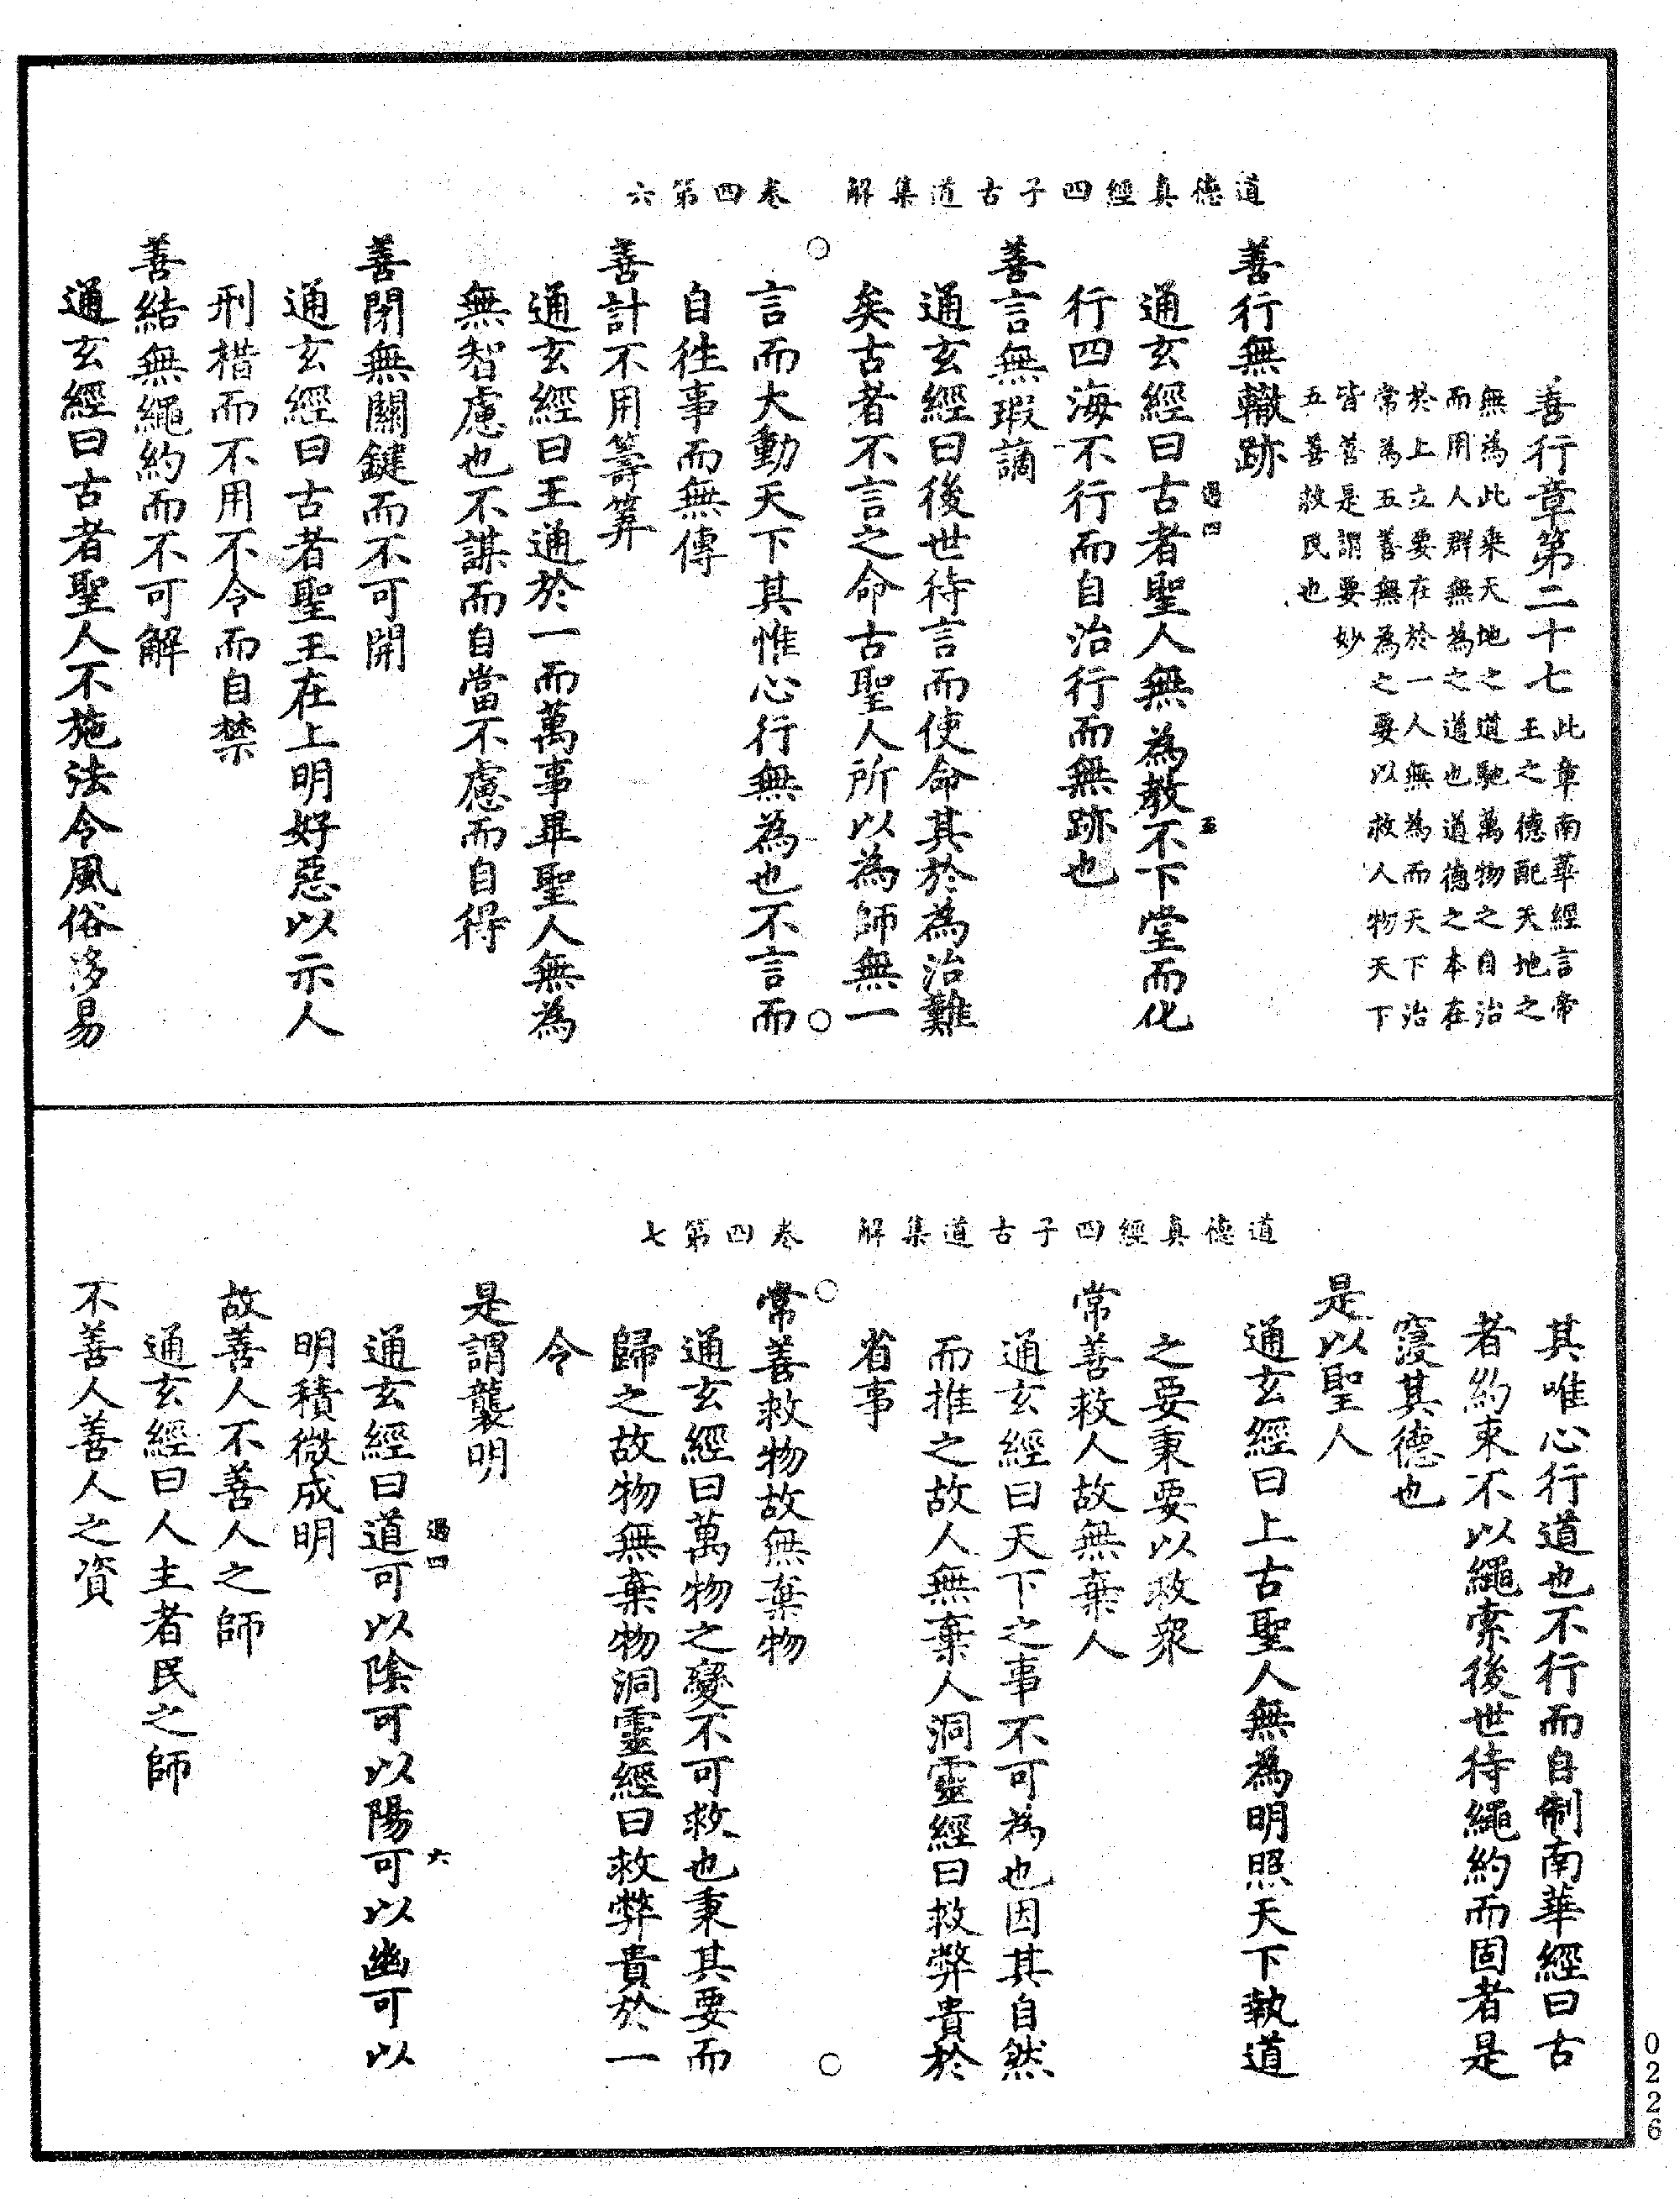 道德真經四子古道集解　卷四第六
善行章第二十七 此章南華經言帝
王之德配天地之
無為此来天地之道馳萬物之自治
而用人群無為之道也道德之本在
於上立要在於一人無為而天下治
常為五善無為之要以救人物天下
皆善是謂要妙
五善救民也
善行無轍跡
通玄經曰古者聖人無為教不下堂而化
過四 五
行四海不行而自治行而無跡也
善言無瑕謫
通玄經曰後世待言而使命其於為治難
矣古者不言之命古聖人所以為師無一
言而大動天下其惟心行無為也不言而
自徃事而無傳
善計不用籌筭
通玄經曰王通於一而萬事畢聖人無為
無智慮也不謀而自當不慮而自得
善閉無關鍵而不可開
通玄經曰古者聖王在上明好惡以示人
刑措而不用不令而自禁
善結無繩約而不可解
通玄經曰古者聖人不施法令風俗移易
道德真經四子古道集解　卷四第七
其唯心行道也不行而自制南華經曰古
者約束不以繩索後世待繩約而固者是
寖其德也
是以聖人
通玄經曰上古聖人無為明照天下執道
之要秉要以救衆
常善救人故無棄人
通玄經曰天下之事不可為也因其自然
而推之故人無棄人洞靈經曰救弊貴於
省事
常善救物故無棄物
通玄經曰萬物之變不可救也秉其要而
歸之故物無棄物洞靈經曰救弊貴於一
令
是謂襲明
過四 六
通玄經曰道可以陰可以陽可以幽可以
明積微成明
故善人不善人之師
通玄經曰人主者民之師
不善人善人之資
0226